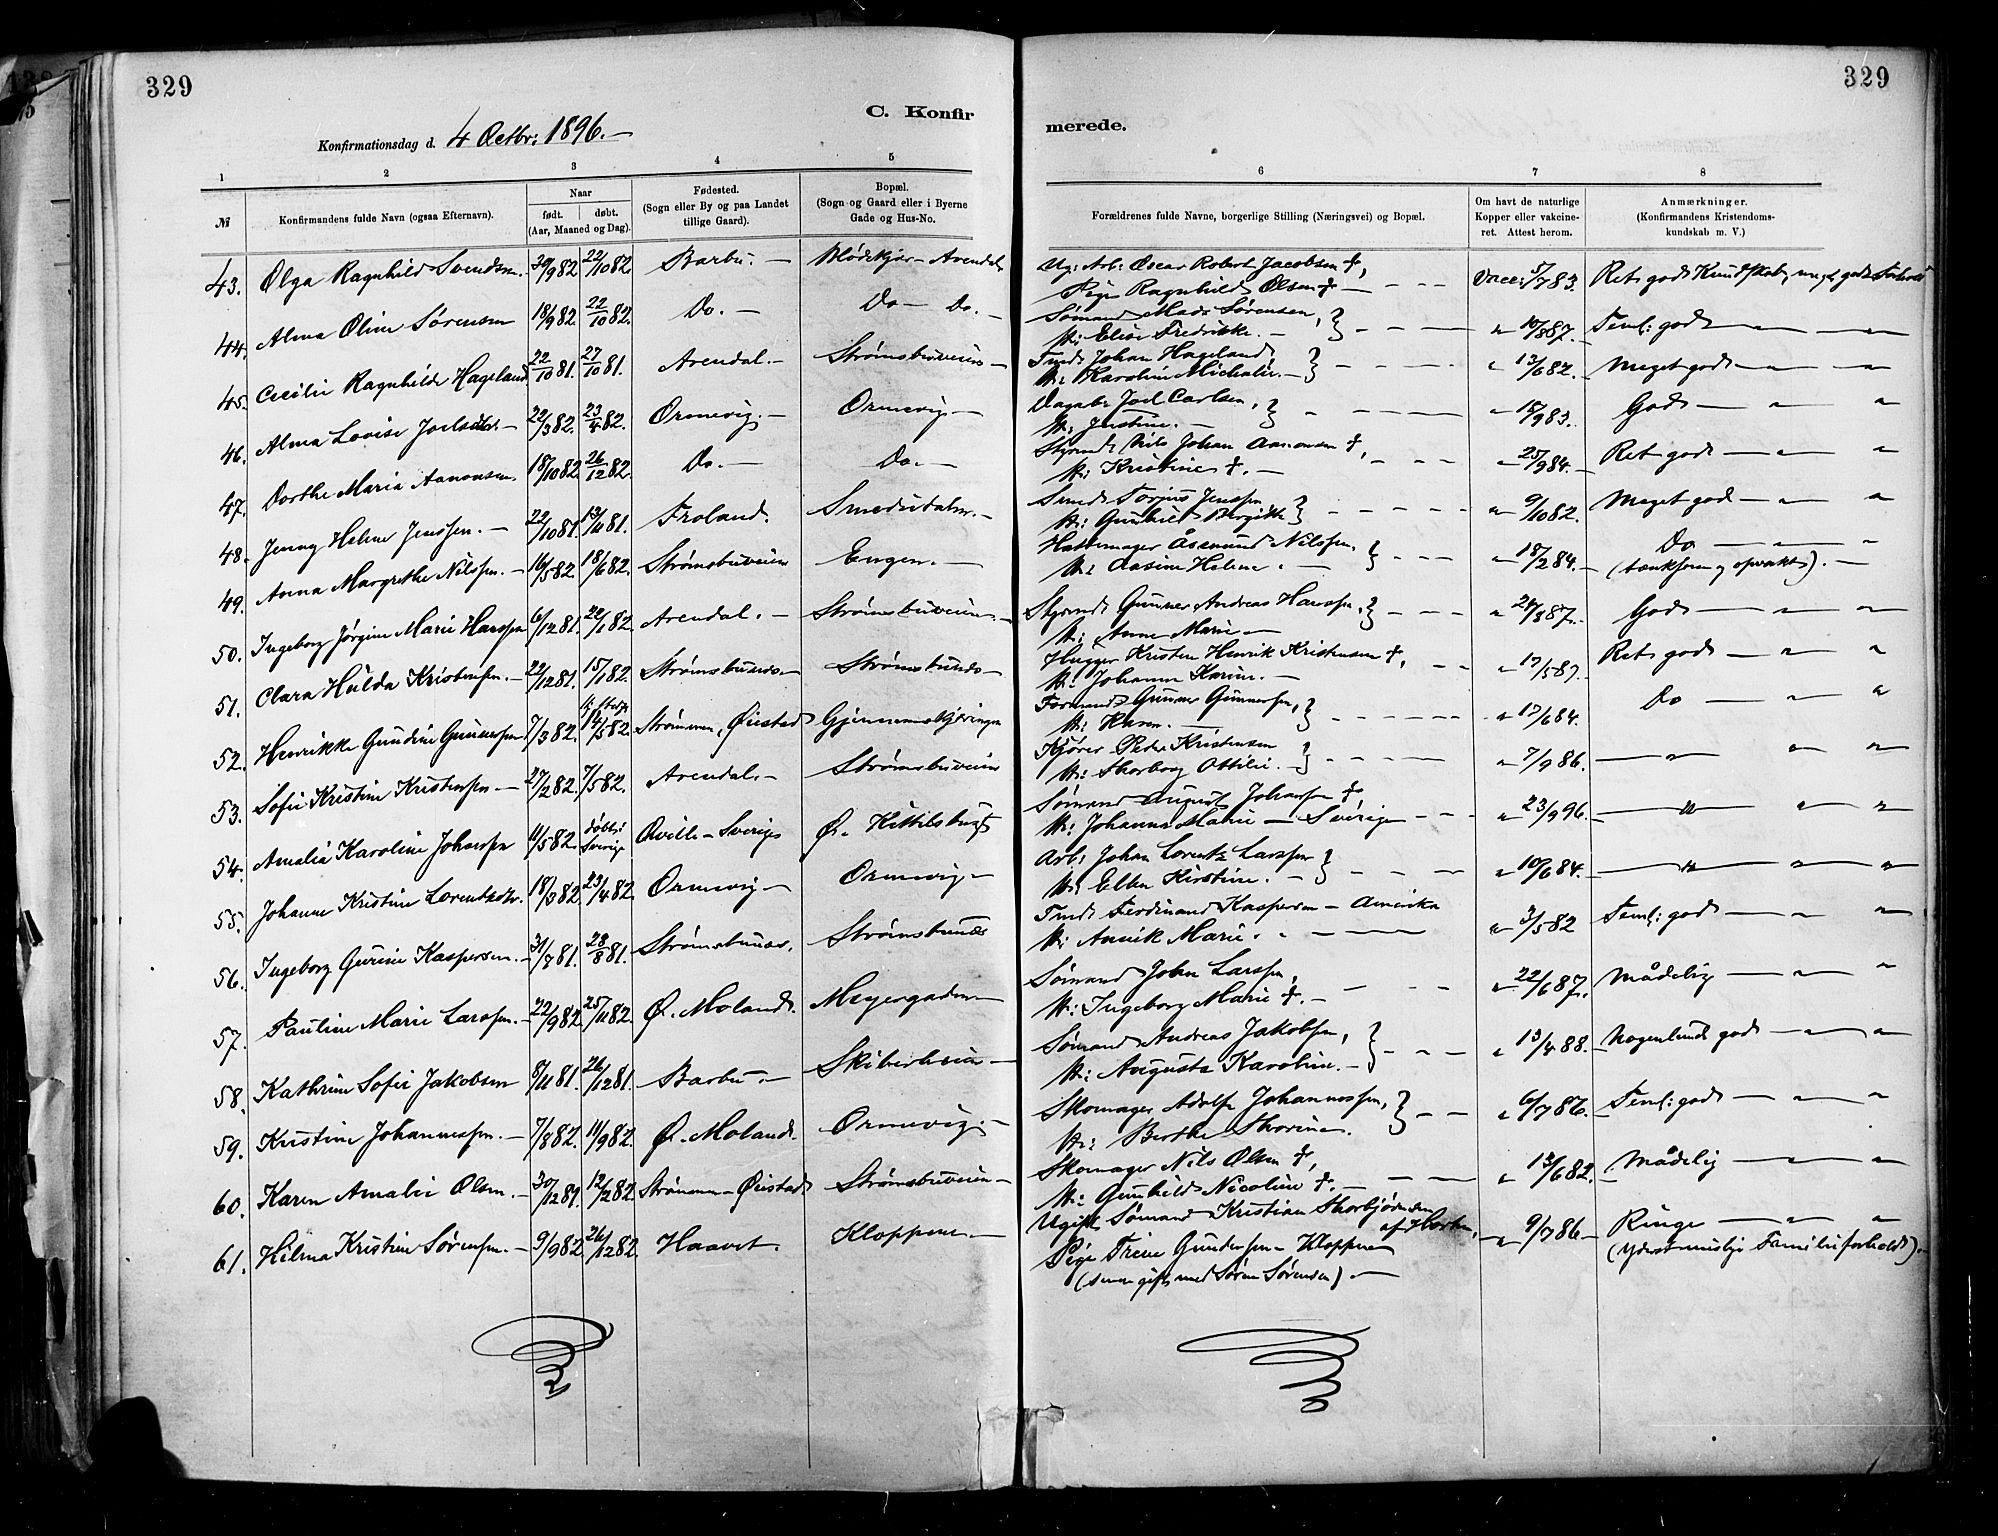 329
329
C. Konfirmerede.
Konfirmationsdag d. 4 Octbr: 1896.
1 2 3 4 5 6 7 8
№ Konfirmandens fulde Navn (ogsaa Efternavn). Naar født. døbt. (Aar, Maaned og Dag). Fødested. (Sogn eller By og paa Landet tillige Gaard). Bopæl. (Sogn og Gaard eller i Byerne Gade og Hus-No. Forældrenes fulde Navne, borgerlige Stilling (Næringsvei) og Bopæl. Om havt de naturlige Kopper eller vakcineret. Attest herom. Anmærkninger. (Konfirmandens Kristendomskundskab m. V.)
43. Olga Ragnhild Svendsen. 30/9 82. 22/10 82. Barbu. — Blødekjær — Arendal Ug: Arb: Oscar Robert Jacobsen †, Pige Ragnhild Olsen † Vacc: Ret god Kundskab, meget god Forhold
44. Alma Oline Sørensen 18/9 82. 22/10 82. Do. — Do — Do. — Sømand Mads Sørensen, H: Elise Fredrikke. — " 10/8 87. Teml: god — " "
45. Cecilie Ragnhilde Hageland 22/10 81. 27/10 81. Arendal. — Strømsbuveien — Johan Hageland, H: Karoline Michaline. — " 13/6 82. — Meget god — " "
46. Alma Lovise Joelsdtr. — 22/3 82. 23/4 82. Ormevig. — Ormevig. — Joel Carlsen, H: Justine. — " 9 83. God — " "
47. Dorthe Maria Aanonsen. 18/10 82 26/12 82. Do. — Do. — Styrmd Nils Johan Aanonsen †, H: Kristine †. — " 25/9 84. — Ret god — " "
48. Jenny Helene Jenssen. — 22/10 81. 13/11 81. Froland. Smededalen. — Smed Torjus Jenssen H: Gunhild Bergitte " 9/10 82. Meget god — " "
49. Anna Margrethe Nilssen. — 16/5 82. 18/6 82. Strømsbuveien Engen. — Hattemager Aasmund Nilssen. H: Aasine Helene. — " 18/2 84. — Do — " (tænksom og opvakt). —
50. Ingeborg Jørgine Marie Hanssen 6/12 81. 22/1 82 Arendal. — Strømsbuveien. — Styrmd Gunner Andreas Hanssen, H: Anne Marie — " 24/3 87. God — " "
51. Clara Hulda Kristensen. — 22/12 81. 15/1 82. Strømsbunæs — Strømsbunæs — Kristen Henrik Kristensen †, H: Johanne Karine. — " 17/5 87. Ret god — " "
52. Henrikke Gundine Gunnersen 7/3 82. 14/5 82. Strømmen, Øiestad Gjennemskjæringen Formand Gunner Gunnersen, H: Karen. — " 17/6 84. Do — " "
53. Sofie Kristine Kristensen — 27/2 82. 7/5 82. Arendal. — Strømsbuveien Peder Kristensen H: Thorborg Ottilie. — " 7/9 86. — " — " "
54. Amalia Karoline Johansen 11/5 82. døbt i Sverige — Sverige Ø. Kittelsbugt Sømand August Johansen † H: Johanne Marie — Sverige — " 23/9 96. — " — " "
55. Johanne Kristine Lorentzdtr. 18/3 82. 23/4 82. Ormevig — Ormevig — Arb: Johan Lorentz Larssen H: Ellen Kirstine. — " 10/6 84. — " — " "
56. Ingeborg Gurine Kaspersen. — 31/7 81. 28/8 81. Strømsbunæs. Strømsbunæs Ferdinand Kaspersen — Amerika H: Annik Marie. " — " 3/5 82 Teml: god — " "
57. Pauline Marie Larssen. — 22/9 82. 25/11 82. Ø. Moland. Meyergaden — Sømand John Larssen, H: Ingeborg Marie †. — " 22/6 87. Mådelig — "
58. Kathrine Sofie Jakobsen 8/11 81. 26/12 81. Barbu. — Skiberheien — Sømand Andreas Jakobsen, H: Augusta Karoline. — " 13/4 88. Nogenlunde god — " "
59. Kristine Johannessen. — 7/8 82. 11/9 82. Ø. Moland. Ormevig. — Skomager Adolf Johannessen, H: Berthe Thorine. " 6/7 86. Teml: god — " "
60. Karen Amalie Olsen. — 30/12 81. 12/2 82. Strømmen — Øiestad Strømsbuveien — Skomager Nils Olsen †, H: Gunhild Nicoline †. — " 13/6 82. Mådelig — " "
61. Hilma Kristine Sørensen. — 9/9 82. 26/12 82. Haavet. Kloppene. — Ugift Sømand Kristian Thorbjørnsen af Pige Trine Gundersen — Kloppene (senere gift med Søren Sørensen). — " 9/7 86 — Ringe — " " (yderst misligt Familieforhold). —